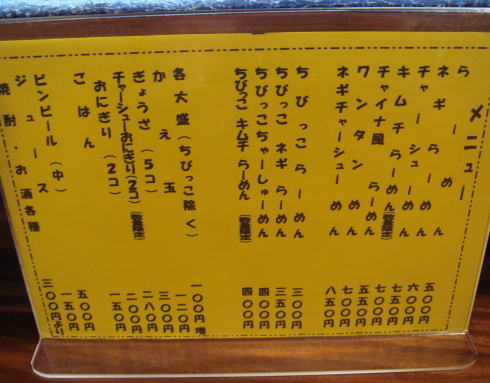 メニュー
らーめん 五〇〇円
ネギーらーめん 六〇〇円
チャーシューめん 七五〇円
キムチらーめん(数量限定) 七五〇円
チャイナ風らーめん 五五〇円
ワンタンめん 七〇〇円
ネギチャーシューめん 八五〇円
ちびっこらーめん 三〇〇円
ちびっこ ネギらーめん 三〇〇円
ちびっこちゃーしゅーめん 四〇〇円
ちびっこ キムチらーめん(数量限定) 四〇〇円
各大盛(ちびっこ除く) 一〇〇円増
かえ玉 一二〇円
ぎょうざ(5コ) 三〇〇円
チャーシューおにぎり(2コ)(数量限定) 二八〇円
おにぎり(2コ) 二〇〇円
ごはん 一五〇円
ビンビール(中) 五〇〇円
ジュース 一五〇円
焼酎・お酒各種 三〇〇円より